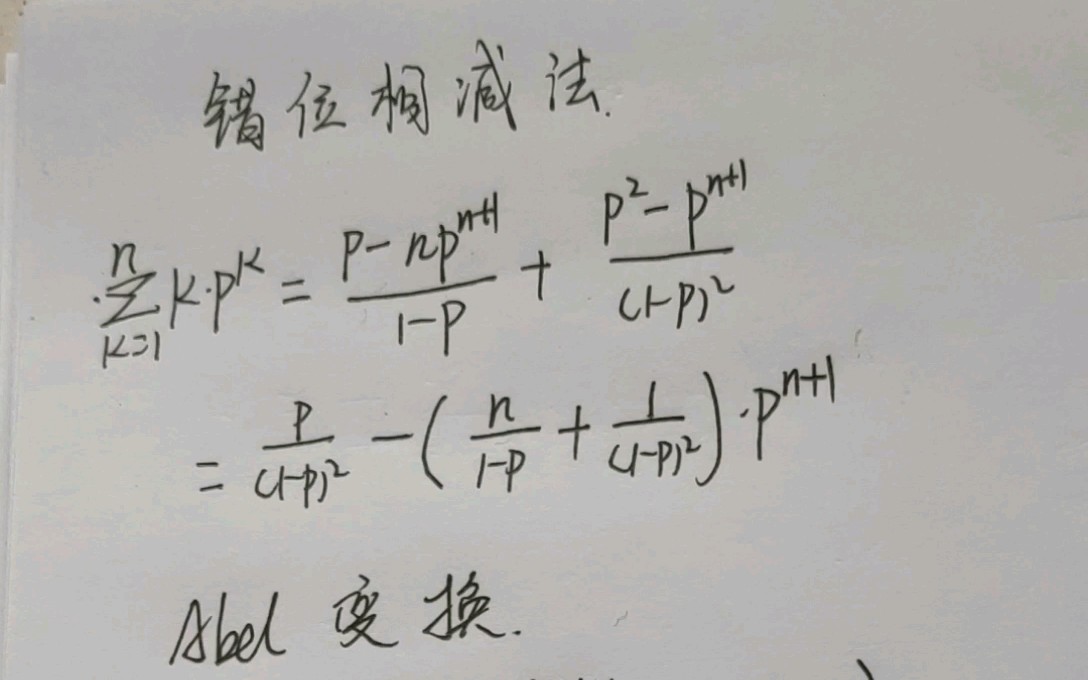 错位相减法.
∑_{k=1}^{n} k·p^k = \frac{p-np^{n+1}}{1-p} + \frac{p^2-p^{n+1}}{(1-p)^2}
= \frac{p}{(1-p)^2} - (\frac{n}{1-p} + \frac{1}{(1-p)^2})·p^{n+1}
Abel 变换.